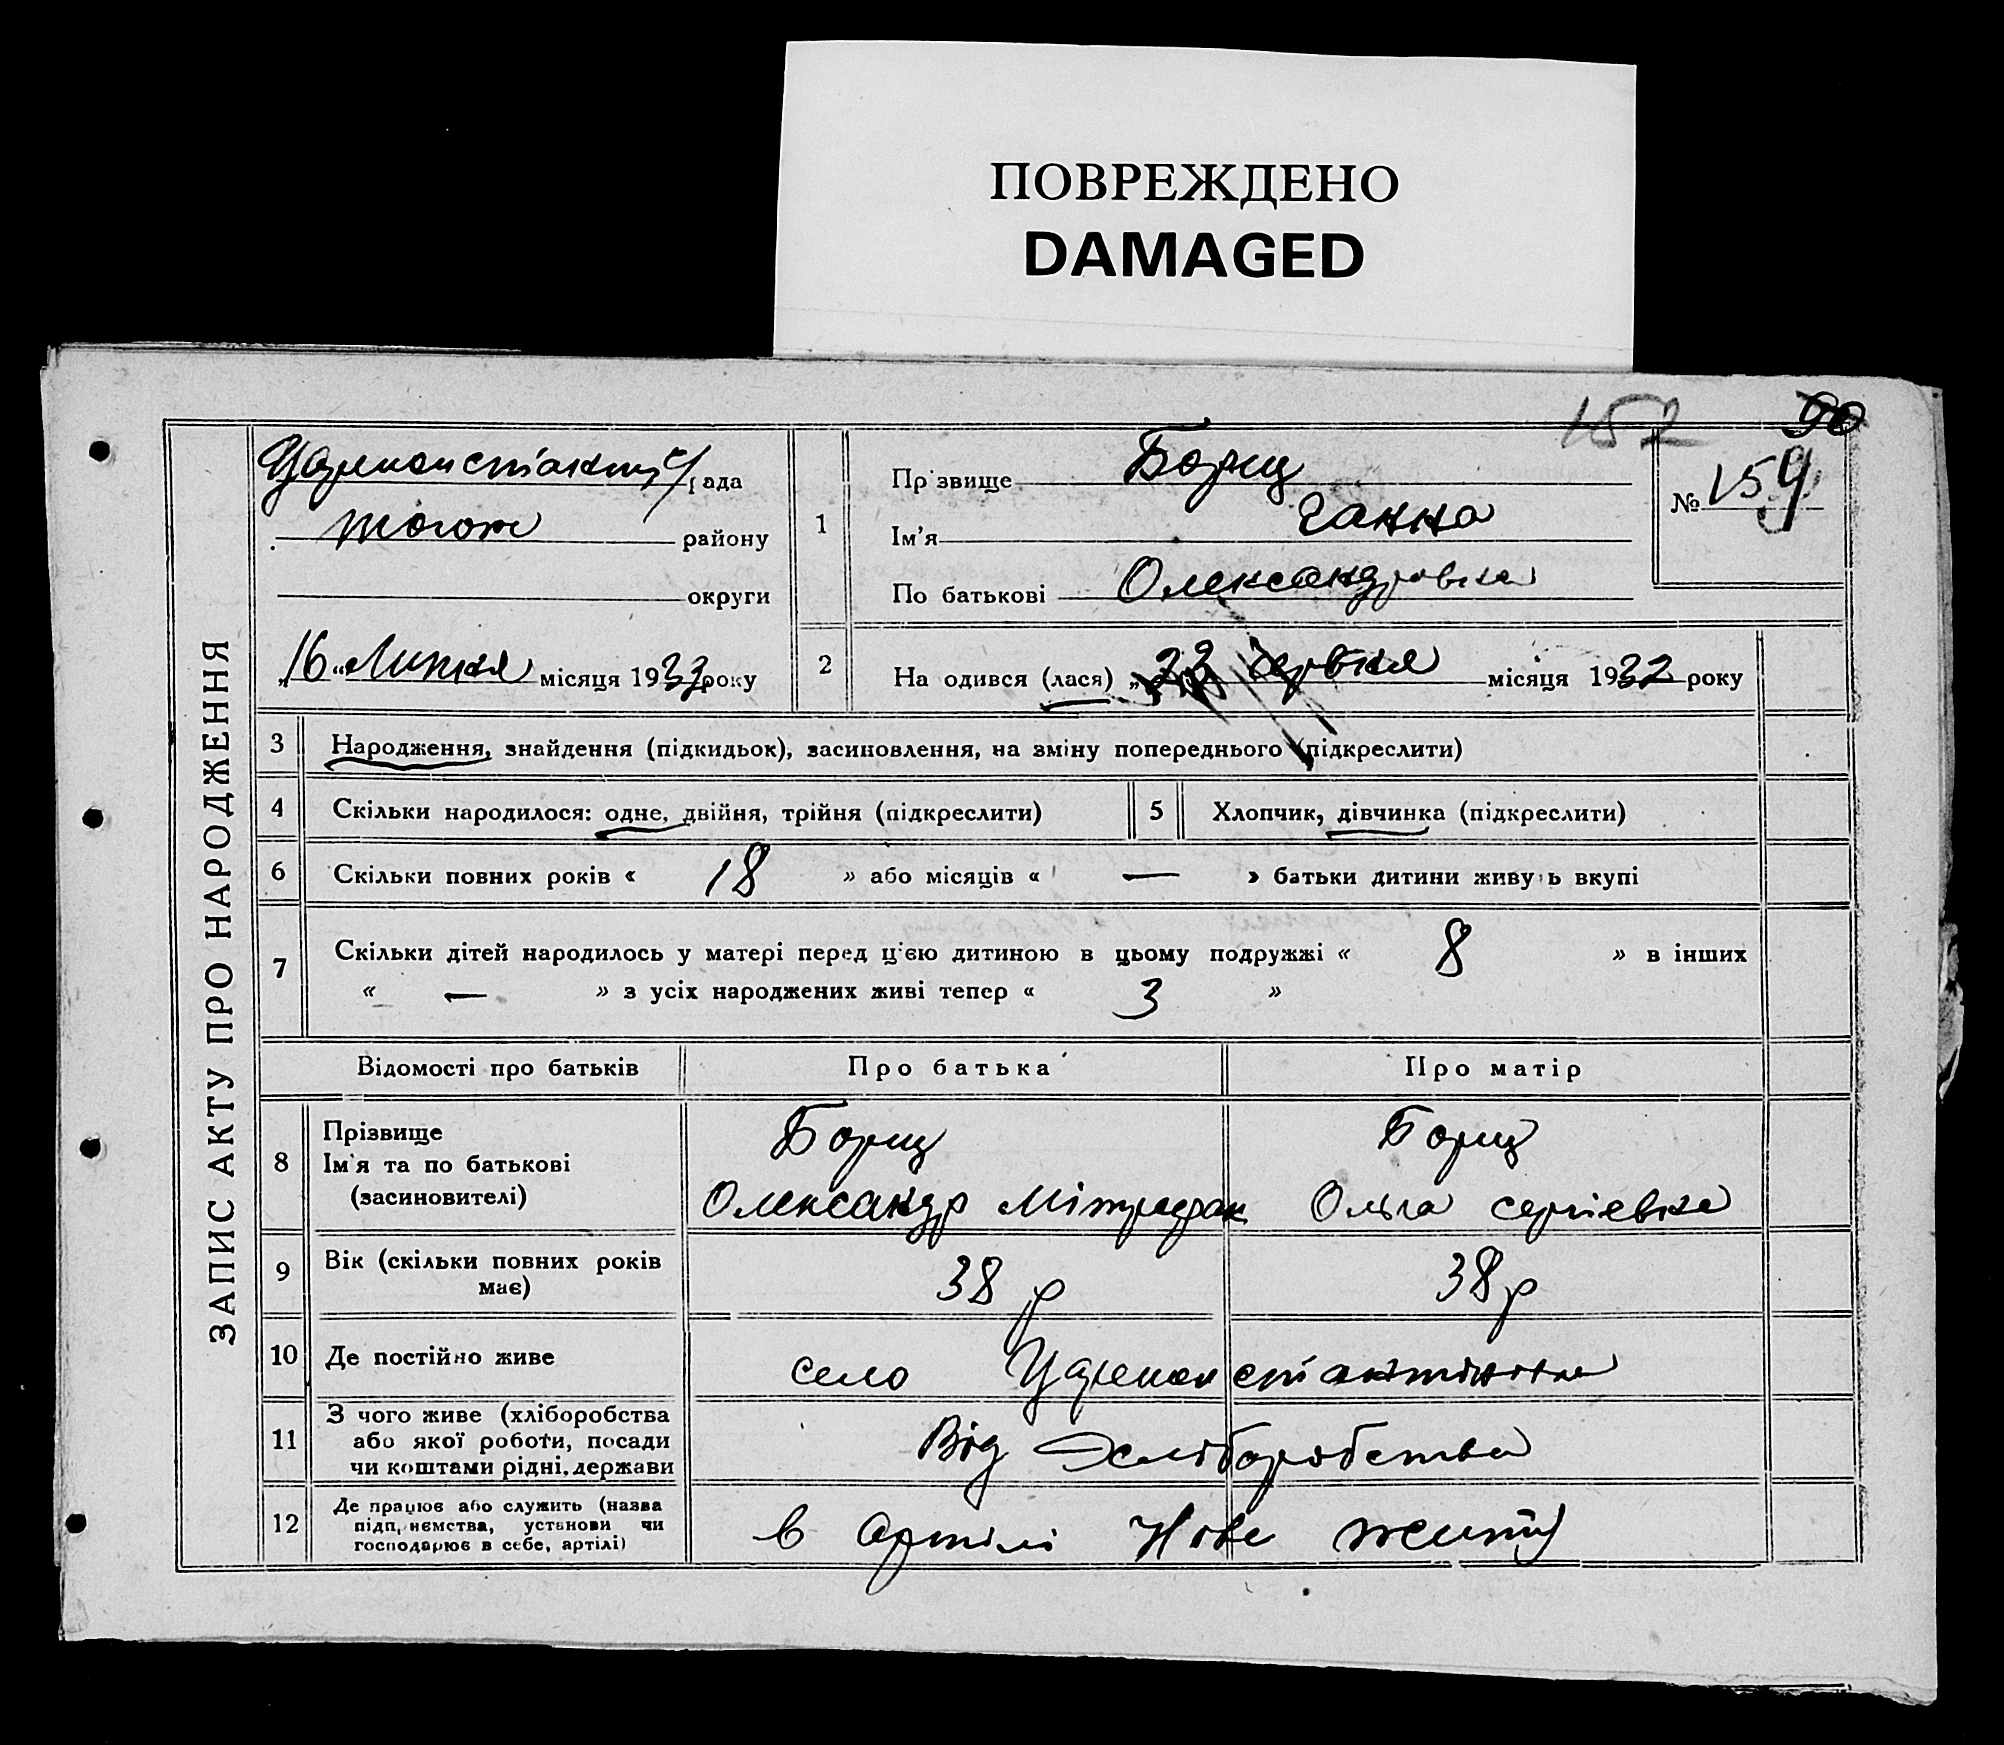 ПОВРЕЖДЕНО
DAMAGED
ЗАПИС АКТУ ПРО НАРОДЖЕННЯ
157 90
рада
району
округи
16 Липня місяця 1933 року
1
Прізвище Борщ
Ім'я Ганна
По батькові Олександровна
№ 159
2 На одився (лася) " червня місяця 1932 року
3 Народження, знайдення (підкидьок), засиновлення, на зміну попереднього (підкреслити)
4 Скільки народилося: одне, двійня, трійня (підкреслити) 5 Хлопчик, дівчинка (підкреслити)
6 Скільки повних років « 18 » або місяців « — » батьки дитини живуть вкупі
7 Скільки дітей народилось у матері перед ц'єю дитиною в цьому подружжі « 8 » в інших
« — » з усіх народжених живі тепер « 3 »
Відомості про батьків Про батька Про матір
8 Прізвище Борщ Борщ
Ім'я та по батькові
(засиновителі) Олександр Ольга сергіевна
9 Вік (скільки повних років має) 38 р 38 р
10 Де постійно живе село
11 З чого живе (хліборобства
або якої роботи, посади
чи коштами рідні, держави Від хліборобства
12 Де працює або служить (назва
підприємства, установи чи
господарює в себе, артілі) в артілі Нове житт